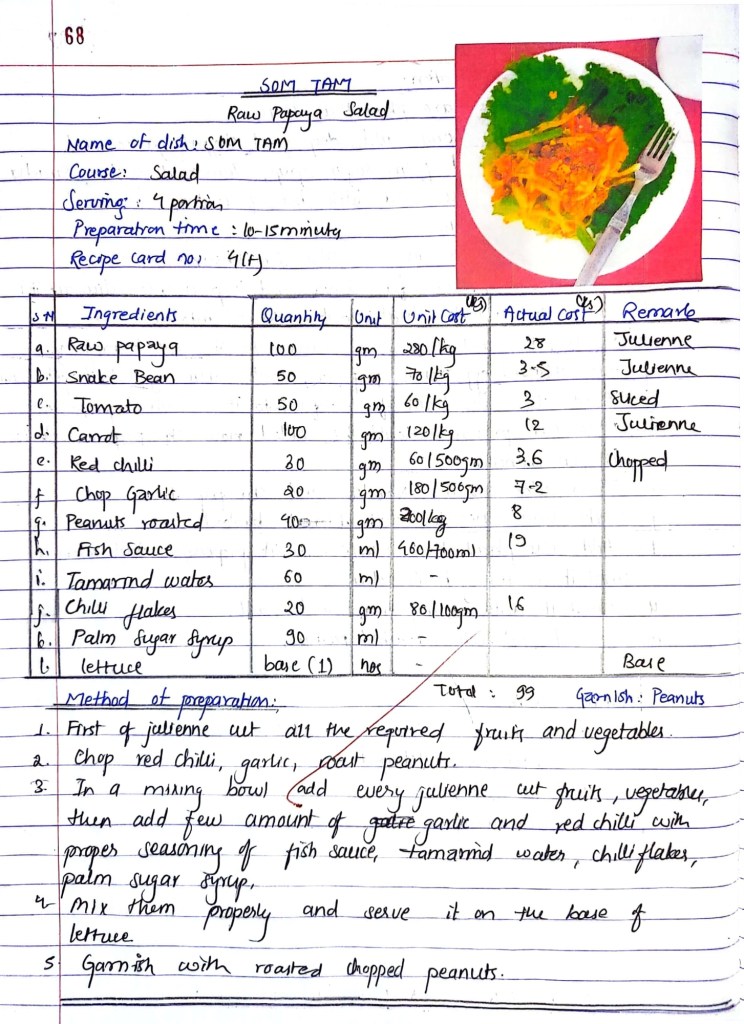 68
SOM TAM
Raw Papaya Salad
Name of dish: SOM TAM
Course: Salad
Serving: 4 portion
Preparation time: 10-15 minuts
Recipe card no:
SN Ingredients Quantity Unit Unit Cost (Rs) Actual Cost (Rs) Remark
a. Raw papaya 100 gm 280/kg 28 Julienne
b. Snake Bean 50 gm 70/kg 3.5 Julienne
c. Tomato 50 gm 60/kg 3 Sliced
d. Carrot 100 gm 120/kg 12 Julienne
e. Red chilli 30 gm 60/500gm 3.6 Chopped
f Chop Garlic 20 gm 180/500gm 7.2
g. Peanuts roasted 40 gm 200/kg 8
h. Fish Sauce 30 ml 460/700ml 19
i. Tamarind water 60 ml -
j. Chilli flakes 20 gm 80/100gm 16
k. Palm Sugar Syrup 90 ml -
l. lettuce base (1) nos - Base
Total: 99 Garnish: Peanuts
Method of preparation:
1. First of julienne cut all the required fruits and vegetables.
2. Chop red chilli, garlic, roast peanuts.
3. In a mixing bowl add every julienne cut fruits, vegetables,
then add few amount of garlic and red chilli with
proper seasoning of fish sauce, tamarind water, chilli flakes,
palm sugar syrup.
4. Mix them properly and serve it on the base of
lettuce
5. Garnish with roasted chopped peanuts.